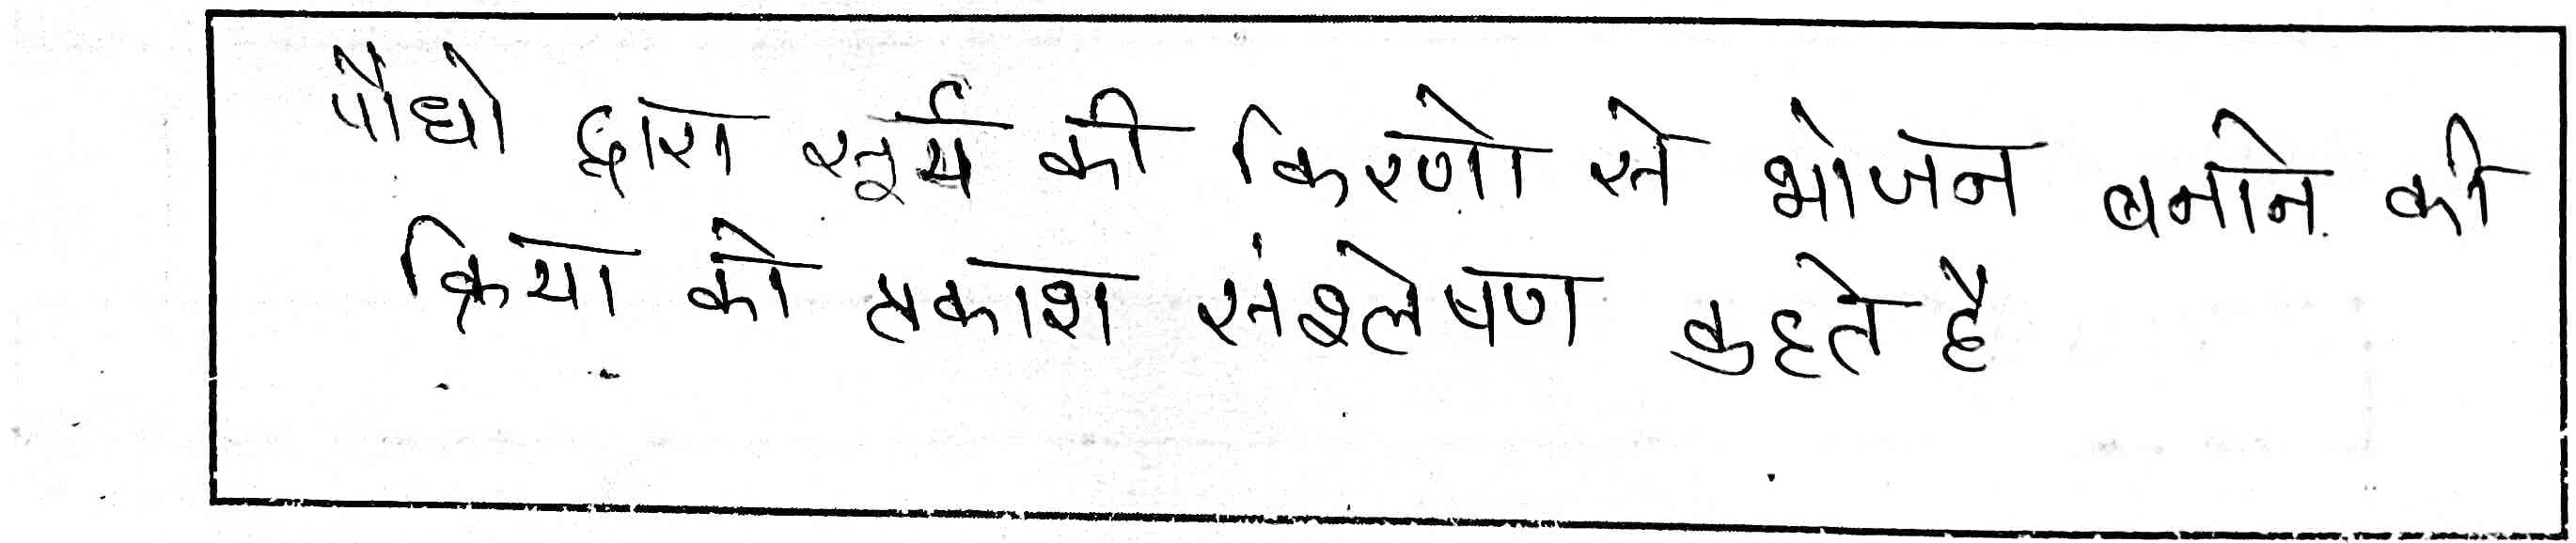 पौधो द्वारा सूर्य की किरणो से भोजन बनाने की
क्रिया को प्रकाश संश्लेषण कहते है